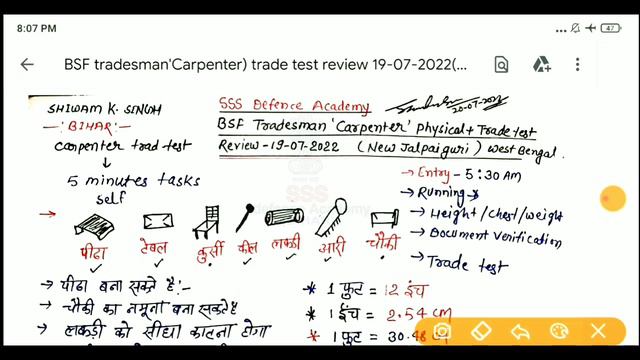 8:07 PM
47
BSF tradesman'Carpenter) trade test review 19-07-2022(...
SHIWAM K. SINGH
-: BIHAR:-
carpenter trad test
↓
5 minutes tasks
self
SSS Defence Academy
20-07-2022
BSF Tradesman 'Carpenter' Physical + Trade test
Review - 19-07-2022 (New Jalpaiguri) West Bengal.
→ Entry - 5:30 AM
→ Running →
→ Height/chest/weight
→ Document Verification
→ Trade test
SSS
पीढा टेबल कुर्सी कील लकड़ी आरी चौकी
→ पीढा बना सकते है:-
→ चौकी का नमूना बना सकते है
→ लकड़ी को सीधा काटना होगा
* 1 फुट = 12 इंच
* 1 इंच = 2.54 cm
* 1 फुट = 30.48 cm